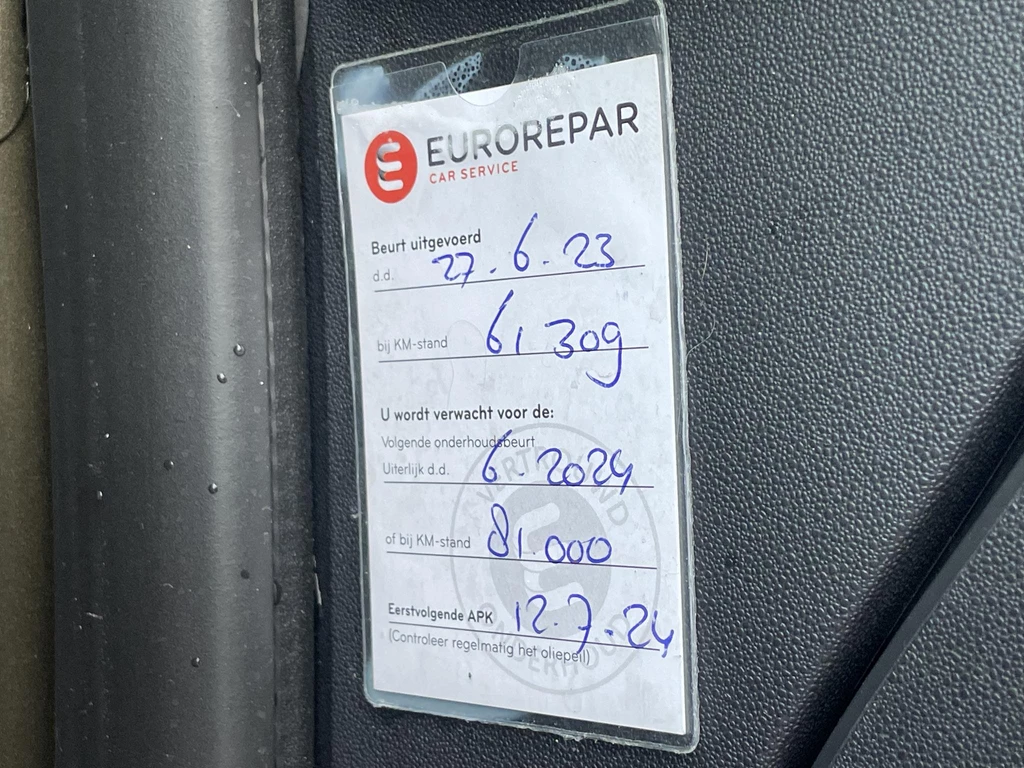 EUROREPAR
CAR SERVICE
Beurt uitgevoerd
d.d. 27.6.23
bij KM-stand 61 309
U wordt verwacht voor de:
Volgende onderhoudsbeurt
Uiterlijk d.d. 6-2024
of bij KM-stand 81.000
Eerstvolgende APK 12.7.24
(Controleer regelmatig het oliepeil)